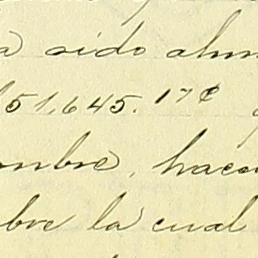 a sido abun
51,645.17¢
ombre, hacer
bre la cual